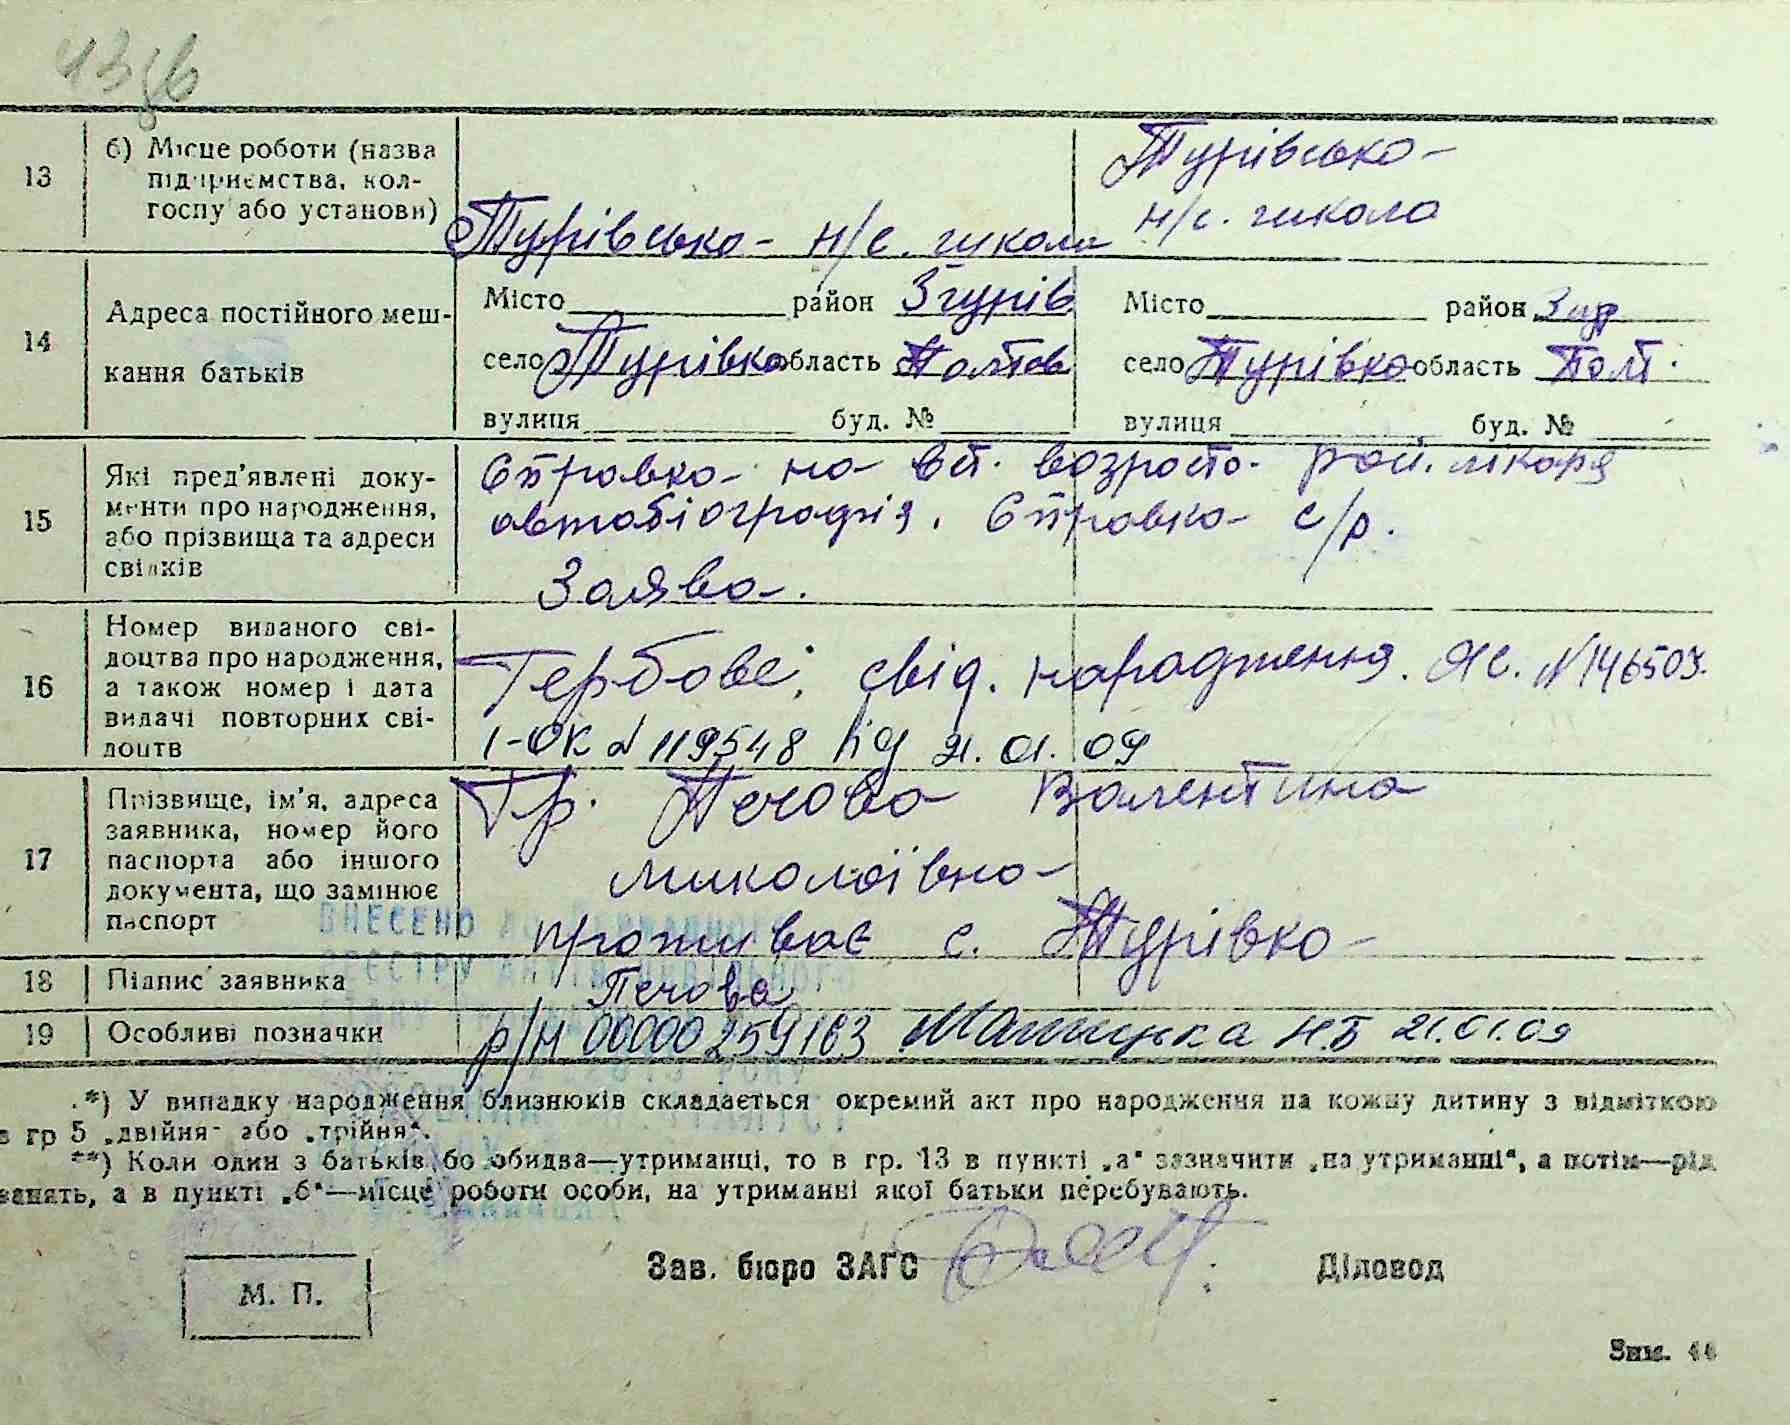 13
б) Місце роботи (назва
підприємства, кол-
госпу або установи)
Турівська н/с. школа
Турівська
н/с. школа
14
Адреса постійного меш-
кання батьків
Місто район Згурів
село Турівка область Полтов
вулиця буд. №
Місто район Згур
село Турівка область Полт.
вулиця буд. №
15
Які пред'явлені доку-
менти про народження,
або прізвища та адреси
свідків
Справка на вст. возроста рай. лікаря
автобіографія. Справка с/р.
Заява.
16
Номер виданого сві-
доцтва про народження,
а також номер і дата
видачі повторних сві-
доцтв
Гербове свід. народження. ЯС. N 146503.
1-ОК № 119548 від 21.01.09
17
Прізвище, ім'я, адреса
заявника, номер його
паспорта або іншого
документа, що замінює
паспорт
Гр. Печова Валентина
Миколаївна
проживає с. Турівка
18 Підпис заявника
Печова
19 Особливі позначки
р/н 00000259163 Н.Б 21.01.09
ВНЕСЕНО до Державного
РЕЄСТРУ
*) У випадку народження близнюків складається окремий акт про народження на кожну дитину з відміткою
в гр 5 „двійня" або „трійня".
**) Коли один з батьків, бо обидва—утриманці, то в гр. 13 в пункті „а" зазначити „на утриманні", а потім—рід
занять, а в пункті „б"—місце роботи особи, на утриманні якої батьки перебувають.
Зав. бюро ЗАГС
Діловод
М. П.